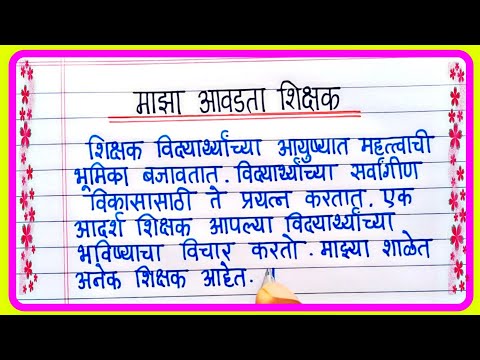 माझा आवडता शिक्षक
शिक्षक विद्यार्थ्यांच्या आयुष्यात महत्त्वाची
भूमिका बजावतात. विद्यार्थ्यांच्या सर्वांगीण
विकासासाठी ते प्रयत्न करतात. एक
आदर्श शिक्षक आपल्या विद्यार्थ्यांच्या
भविष्याचा विचार करतो. माझ्या शाळेत
अनेक शिक्षक आहेत.